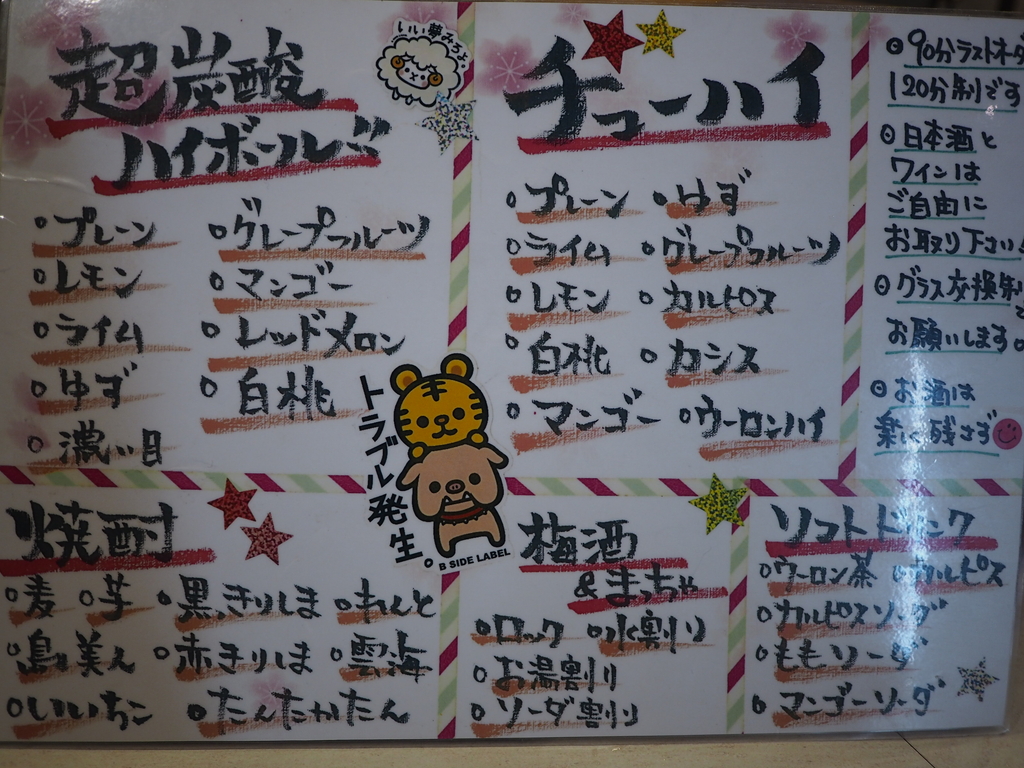 超炭酸
ハイボール!!
いい夢みろよ。
・プレーン
・レモン
・ライム
・ゆず
・濃い目
・グレープフルーツ
・マンゴー
・レッドメロン
・白桃
チューハイ
・プレーン
・ライム
・レモン
・白桃
・マンゴー
・ゆず
・グレープフルーツ
・カルピス
・カシス
・ウーロンハイ
90分ラストオーダ
120分制です
日本酒と
ワインは
ご自由に
お取り下さい
グラス交換制
お願いします。
お酒は
楽しく残さず
トラブル発生。
B SIDE LABEL
焼酎
・麦 ・芋 ・黒きりしま ・れんと
・島美人 ・赤きりしま ・雲海
・いいちこ ・たんたかたん
梅酒
&まっちゃ
・ロック ・水割り
・お湯割り
・ソーダ割り
ソフトドリンク
・ウーロン茶 ・カルピス
・カルピスソーダ
・ももソーダ
・マンゴーソーダ